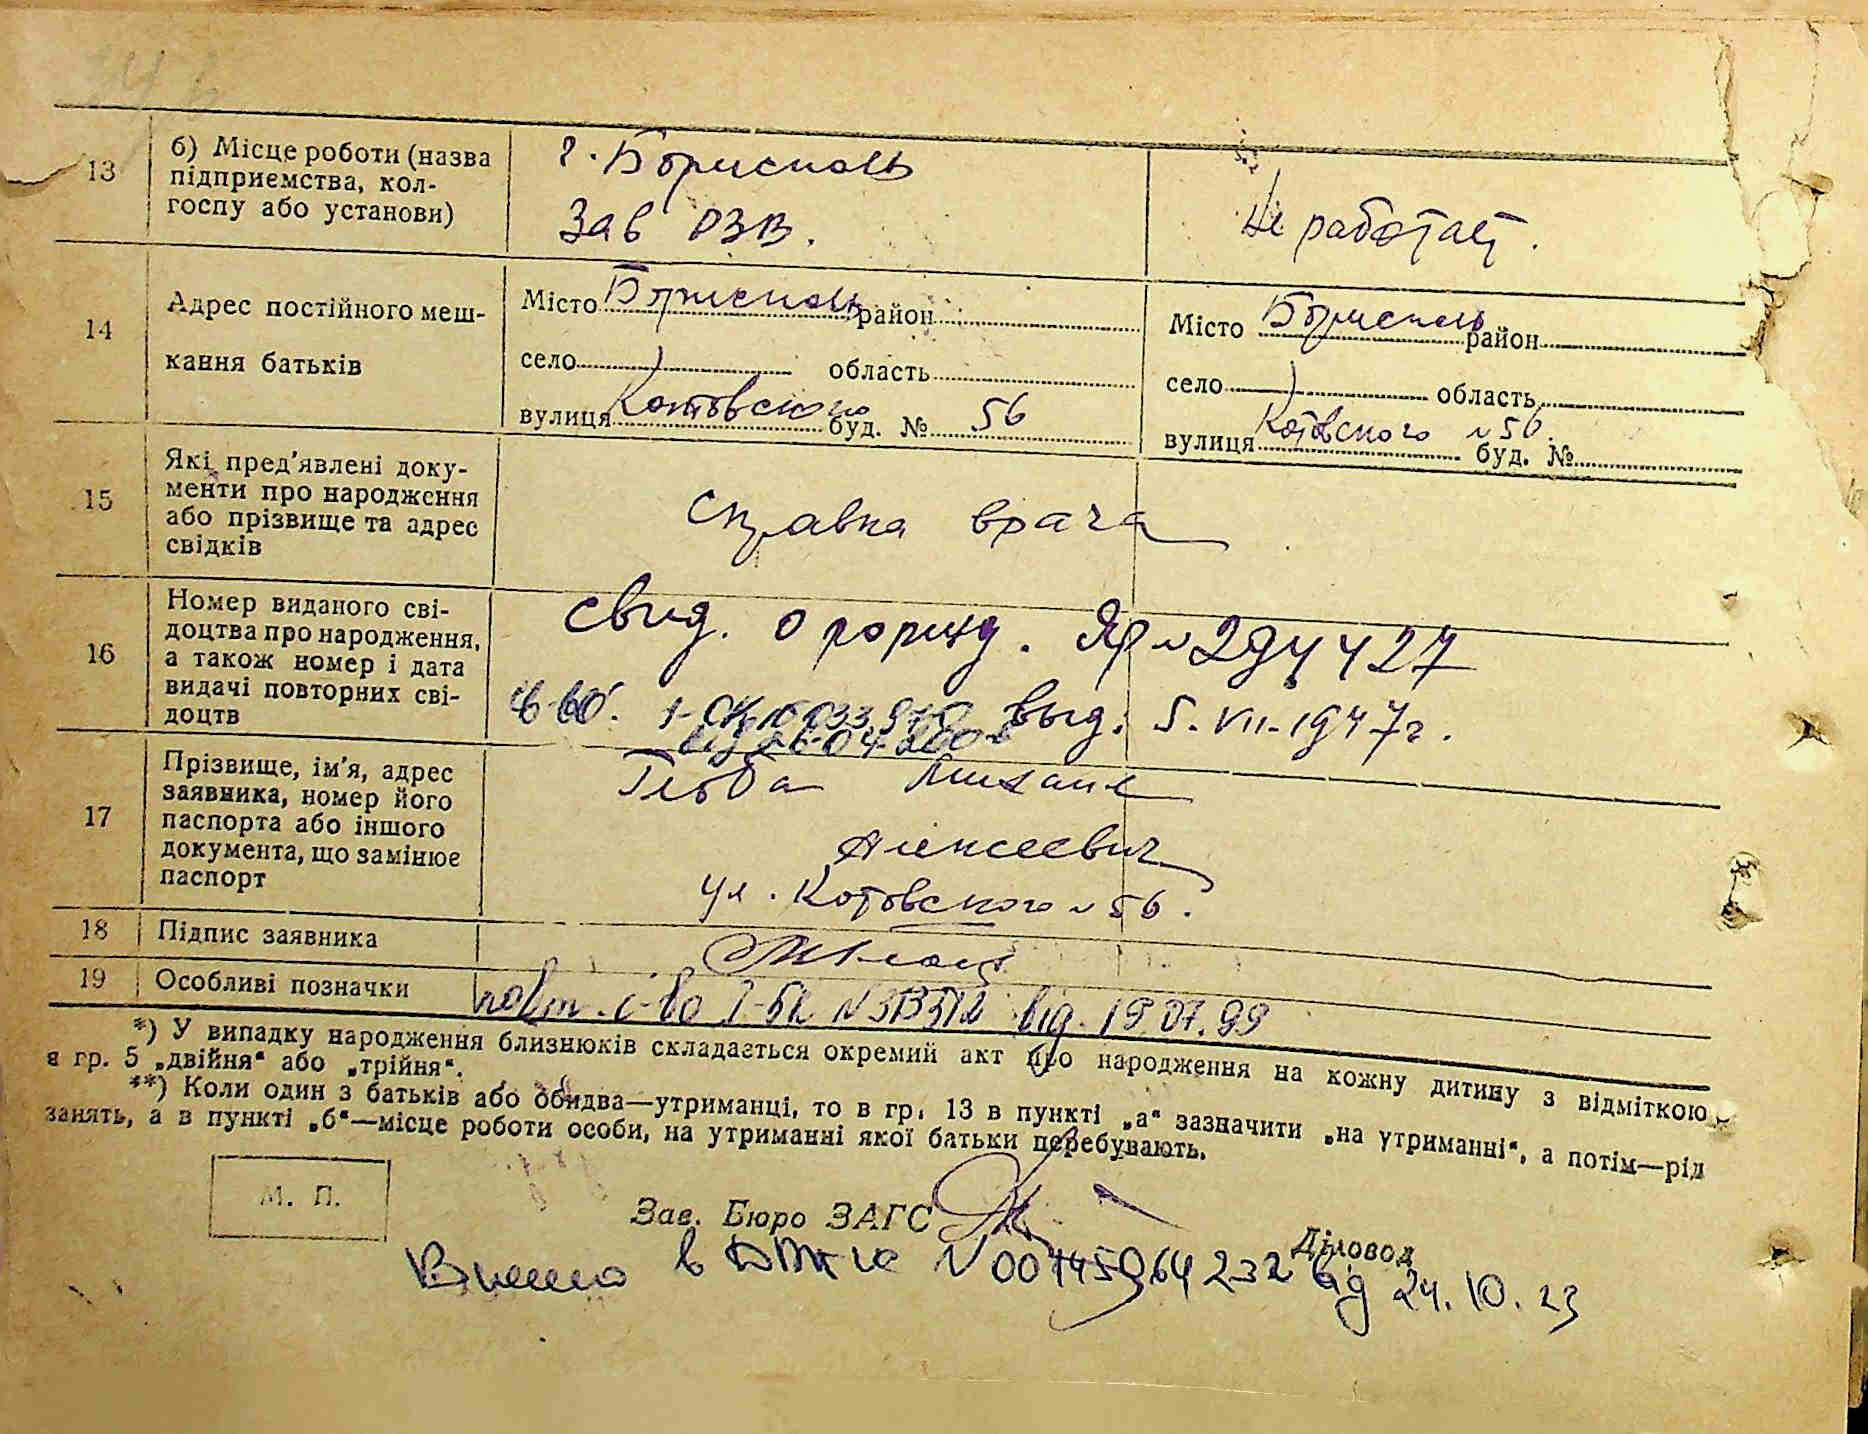 13
б) Місце роботи (назва
підприємства, кол-
госпу або установи)
г. Борисполь
Зав РЗВ.
Не работает.
14
Адрес постійного меш-
кання батьків
Місто Борисполь район
село область
вулиця Котовского буд. № 56
Місто Борисполь район
село область
вулиця Котовского № 56. буд. №
15
Які пред'явлені доку-
менти про народження
або прізвище та адрес
свідків
Справка врача
16
Номер виданого сві-
доцтва про народження,
а також номер і дата
видачі повторних сві-
доцтв
свид. о рожд. ЯР № 294427
выд. 5.VII-1947г.
17
Прізвище, ім'я, адрес
заявника, номер його
паспорта або іншого
документа, що замінює
паспорт
Михаил
Алексеевич
ул. Котовского № 56.
18
Підпис заявника
19
Особливі позначки
повт. с-во І-БК від. 19.07.99
*) У випадку народження близнюків складається окремий акт про народження на кожну дитину з відміткою
в гр. 5 „двійня“ або „трійня“.
**) Коли один з батьків або обидва—утриманці, то в гр. 13 в пункті „а“ зазначити „на утриманні“, а потім—рід
занять, а в пункті „б“—місце роботи особи, на утриманні якої батьки перебувають.
М. П.
Зав. Бюро ЗАГС
Діловод
в № 00445964232 від 24.10.23